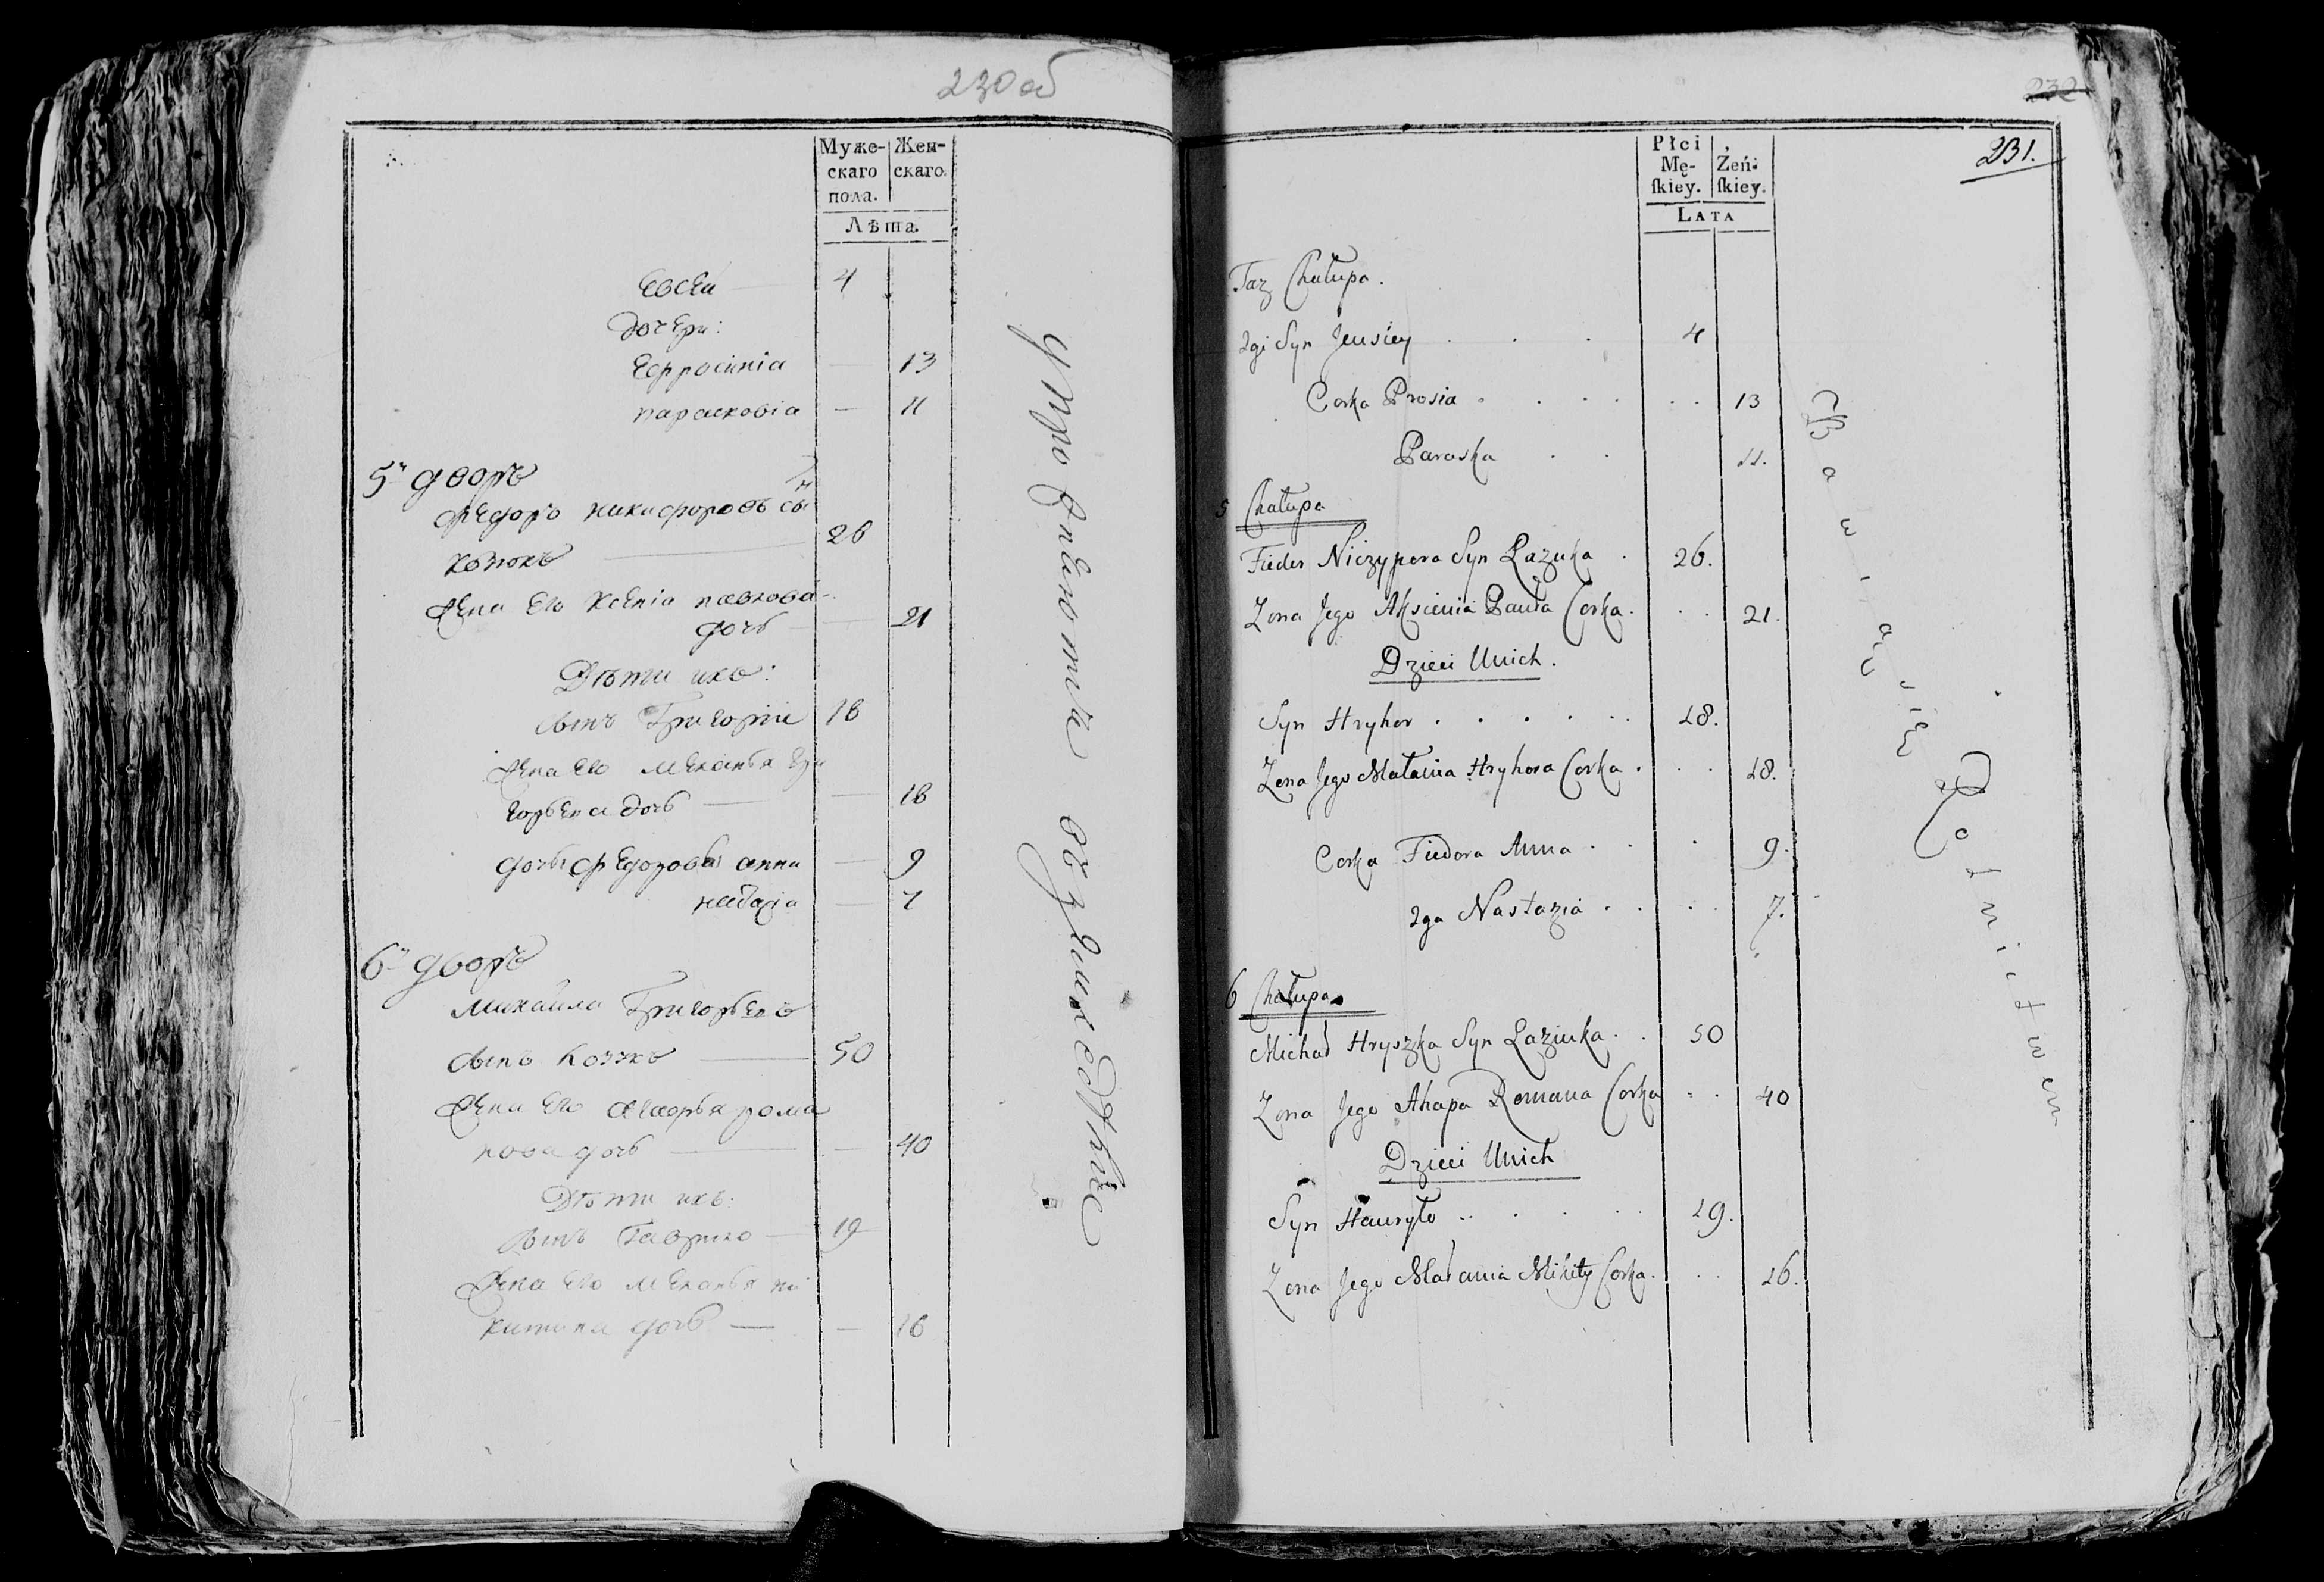 230 об
Муже-
скаго
пола.
Жен-
скаго.
Лѣта
Евсеи 4
дочери:
Ефросинiа — 13
парасковiа — 11
5й дворъ
Федоръ никифоровъ сын
26
Жена Его Ксенiа павлова
дочь — 21
Дѣти ихъ:
сынъ Григорiи 18
Жена Его Меланья Гри
горьева дочь — 18
дочь Федорова анна — 9
— 7
6й дворъ
михайла Григорьевъ
сынъ 50
Жена Его Агафья рома
нова дочь — 40
Дѣти ихъ:
сынъ Гаврило — 19
Жена Его Меланья ни
китина дочь — — 16
упро
232
231.
Płci
Mę-
ſkiey.
Żeń-
ſkiey.
Lata
Taz Chałupa.
2gi Syn Jeusiey . . . 4
Corka Prosia . . . . . . 13
Paraska . . 11.
5 Chałupa
Fiedor Niczypora Syn Łazuka . 26.
Zona Jego Aksienia Pauła Corka . . . 21.
Dzieci Unich.
Syn Hryhor . . . . . . 18.
Zona Jego Małania Hryhora Corka . . . 18.
Corka Fiedora Anna . . . 9.
2ga Nastazia . . . . 7.
6 Chałupa
Michał Hryszka Syn Laziuka . . 50
Zona Jego Ahapa Romana Corka . . 40
Dzieci Unich
Syn Hauryło . . . . . 19.
Zona Jego Małania Mikity Corka . . . 16.
Bawiaią Się Rolnictwem